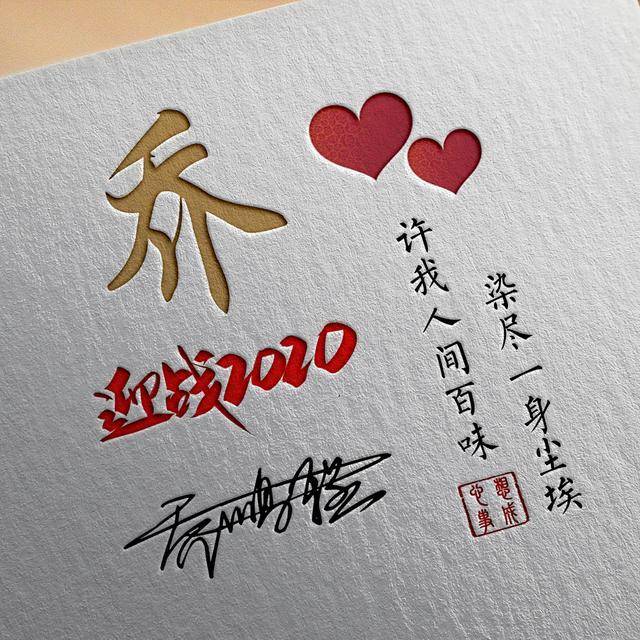 乔
迎战2020
染尽一身尘埃
许我人间百味
心想事成